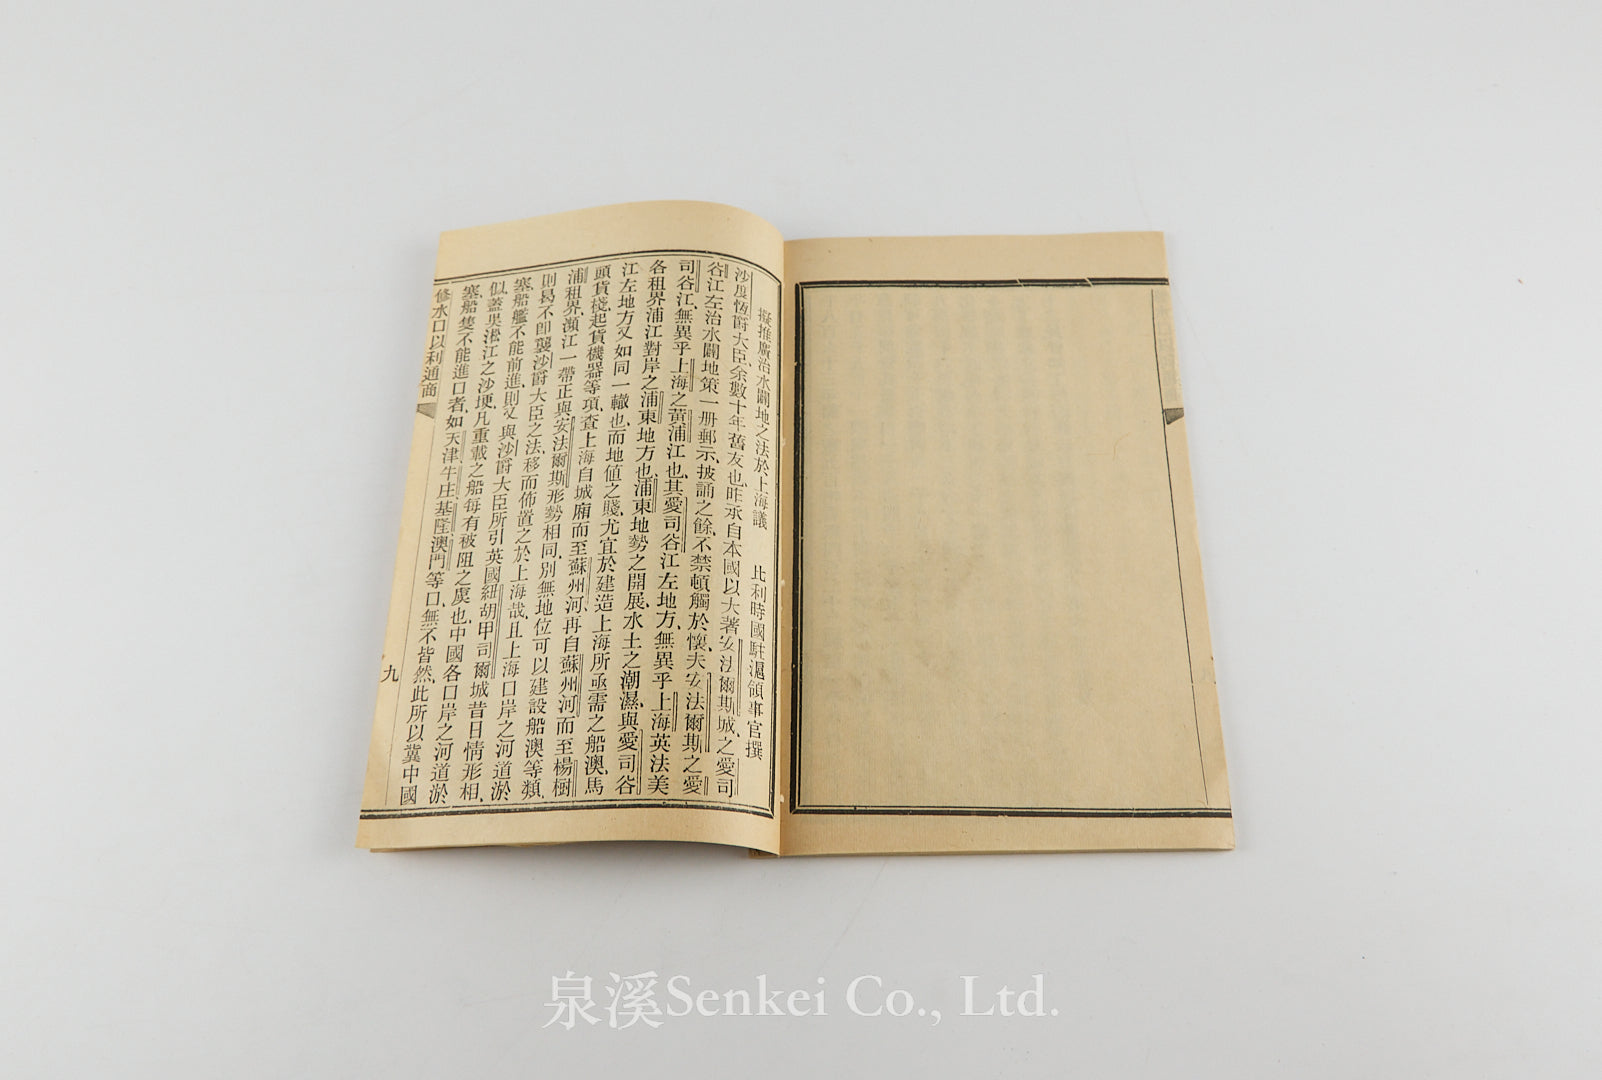 擬推廣治水闢地之法於上海議 比利時國駐滬領事官撰
沙度恆爵大臣、余數十年舊友也、昨承自本國以大著安法爾斯城、之愛司
谷江左治水闢地策一册郵示、披誦之餘、不禁頓觸於懷、夫安法爾斯之愛
司谷江、無異乎上海之黃浦江也、其愛司谷江左地方、無異乎上海英法美
各租界浦江對岸之浦東地方也、浦東地勢之開展、水土之潮濕、與愛司谷
江左地方、又如同一轍也、而地値之賤、尤宜於建造上海所亟需之船澳、馬
頭貨棧、起貨機器等項、査上海自城廂而至蘇州河、再自蘇州河而至楊樹
浦租界、瀕江一帶、正與安法爾斯形勢相同、別無地位可以建設船澳等類、
則曷不卽襲沙爵大臣之法、移而佈置之於上海哉、且上海口岸之河道淤
塞、船艦不能前進、則又與沙爵大臣所引英國紐胡甲司爾城昔日情形相
似、蓋吳淞江之沙埂、凡重載之船、每有被阻之虞也、中國各口岸之河道淤
塞、船隻不能進口者、如天津牛庄、基隆、澳門等口、無不皆然、此所以冀中國
修水口以利通商
九
泉溪Senkei Co., Ltd.